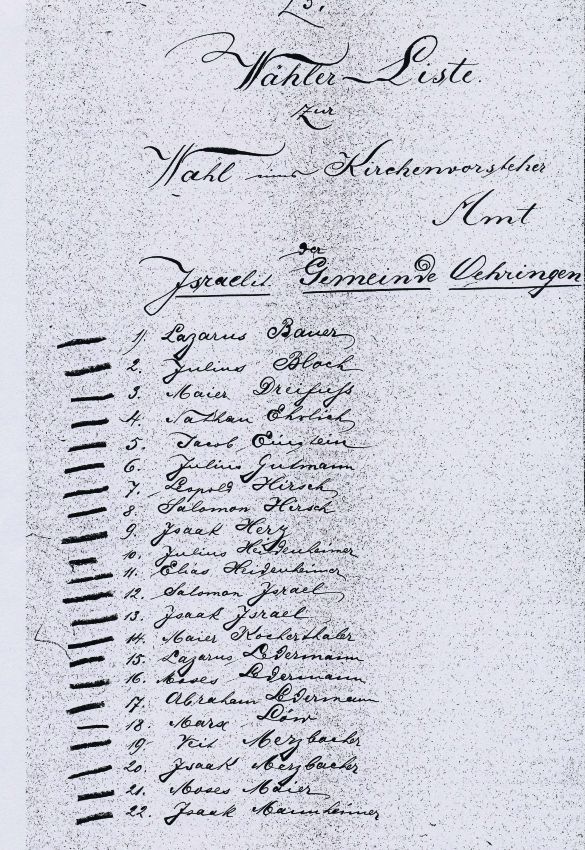 Wähler-Liste.
zur
Wahl Kirchenvorsteher
Amt
der
Israelit. Gemeinde Oehringen
1. Lazarus Bauer
2. Julius Bloch
3. Maier Dreifuss
4. Nathan Ehrlich
5. Jacob Einstein
6. Julius Gutmann
7. Leopold Hirsch
8. Salomon Hirsch
9. Isaak Herz
10. Julius Heidenheimer
11. Elias Heidenheimer
12. Salomon Israel
13. Isaak Israel
14. Maier Kocherthaler
15. Lazarus Ledermann
16. Moses Ledermann
17. Abraham Ledermann
18. Marx Löw
19. Veit Merzbacher
20. Isaak Merzbacher
21. Moses Maier
22. Isaak Mannheimer